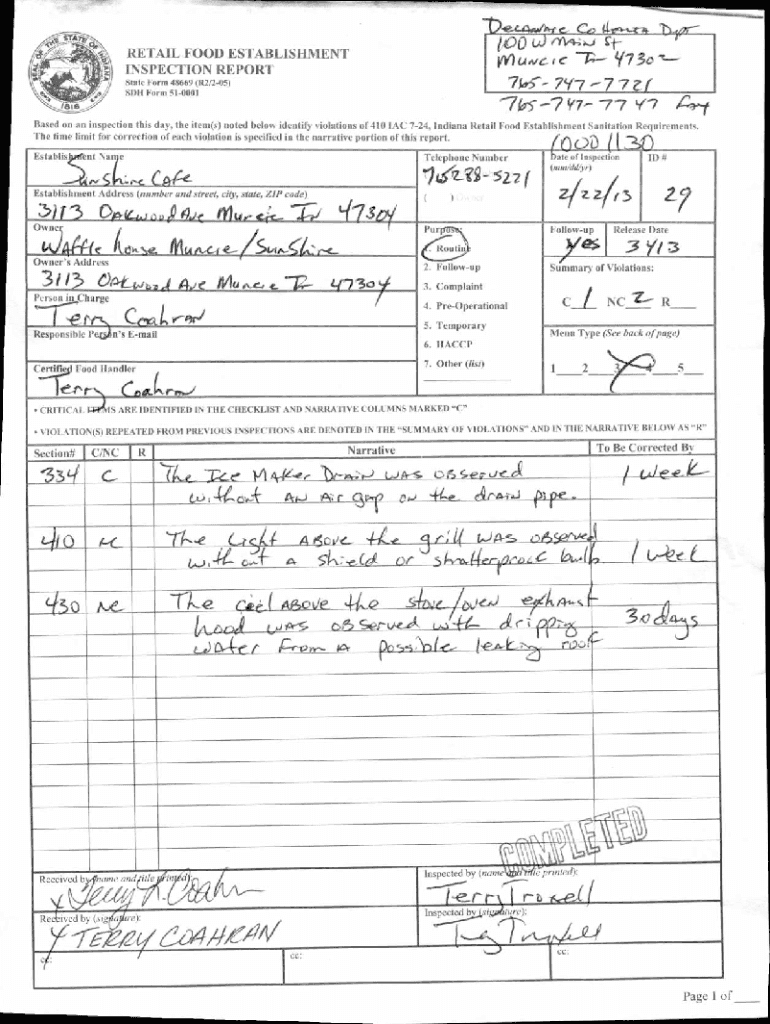 Delaware Co Health Dpt
100 W Main St
Muncie In 47302
765-747-7721
765-747-7747 Fax
RETAIL FOOD ESTABLISHMENT
INSPECTION REPORT
State Form 48669 (R2/2-05)
SDH Form 51-0001
SEAL OF THE STATE OF INDIANA
1816
Based on an inspection this day, the item(s) noted below identify violations of 410 IAC 7-24, Indiana Retail Food Establishment Sanitation Requirements.
The time limit for correction of each violation is specified in the narrative portion of this report.
1000 1130
Establishment Name
Sunshine Cafe
Telephone Number
765288-5221
Date of Inspection
(mm/dd/yr)
2/22/13
ID #
29
Establishment Address (number and street, city, state, ZIP code)
3113 Oakwood Ave Muncie In 47304
Owner
Waffle house Muncie/Sunshine
Purpose:
1. Routine
Follow-up
yes
Release Date
3413
Owner's Address
3113 Oakwood Ave Muncie In 47304
2. Follow-up
3. Complaint
4. Pre-Operational
5. Temporary
6. HACCP
7. Other (list)
Summary of Violations:
C 1 NC 2 R
Person in Charge
Terry Coahran
Responsible Person's E-mail
Menu Type (See back of page)
1 2 3 4 5
Certified Food Handler
Terry Coahran
• CRITICAL ITEMS ARE IDENTIFIED IN THE CHECKLIST AND NARRATIVE COLUMNS MARKED "C"
• VIOLATION(S) REPEATED FROM PREVIOUS INSPECTIONS ARE DENOTED IN THE "SUMMARY OF VIOLATIONS" AND IN THE NARRATIVE BELOW AS "R"
Section# C/NC R Narrative To Be Corrected By
334 C The Ice Maker Drain was observed 1 week
without an air gap on the drain pipe.
410 NC The Light above the grill was observed
with out a shield or shratterproof bulb 1 week
430 NC The ceel above the stove/oven exhaust
hood was observed with dripping 30 days
water from a possible leaking roof
COMPLETED
Received by (name and title printed):
x Terry L. Coahran
Inspected by (name and title printed):
Terry Troxell
Received by (signature):
x TERRY COAHRAN
Inspected by (signature):
Terry Troxell
cc:
cc:
cc:
Page 1 of